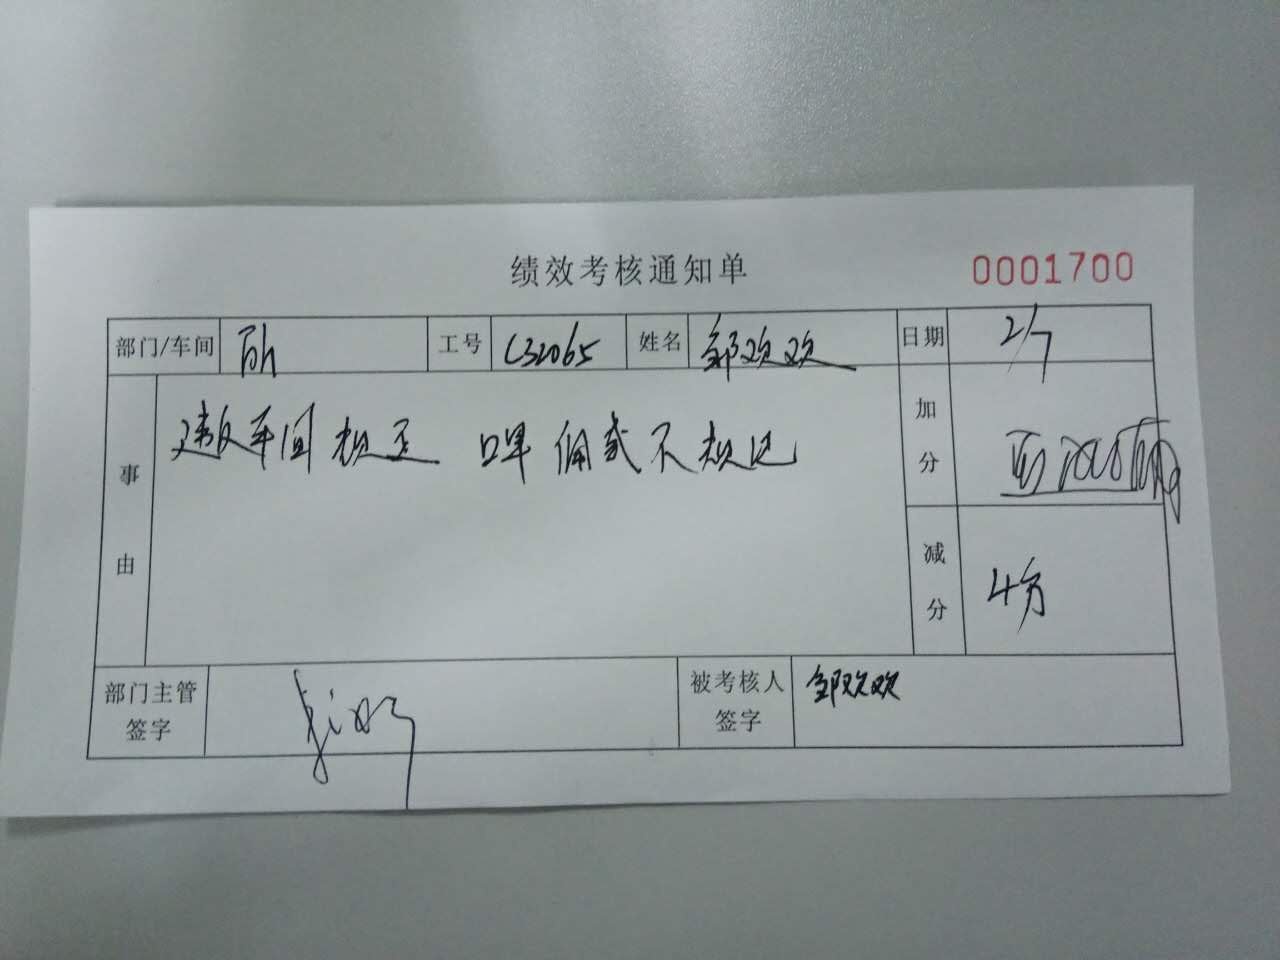 绩效考核通知单 0001700
部门/车间 工号 C32065 姓名 邹欢欢 日期 2/7
事由 违反车间规定 口罩佩戴不规范
加分
减分 4分
部门主管签字
被考核人签字 邹欢欢